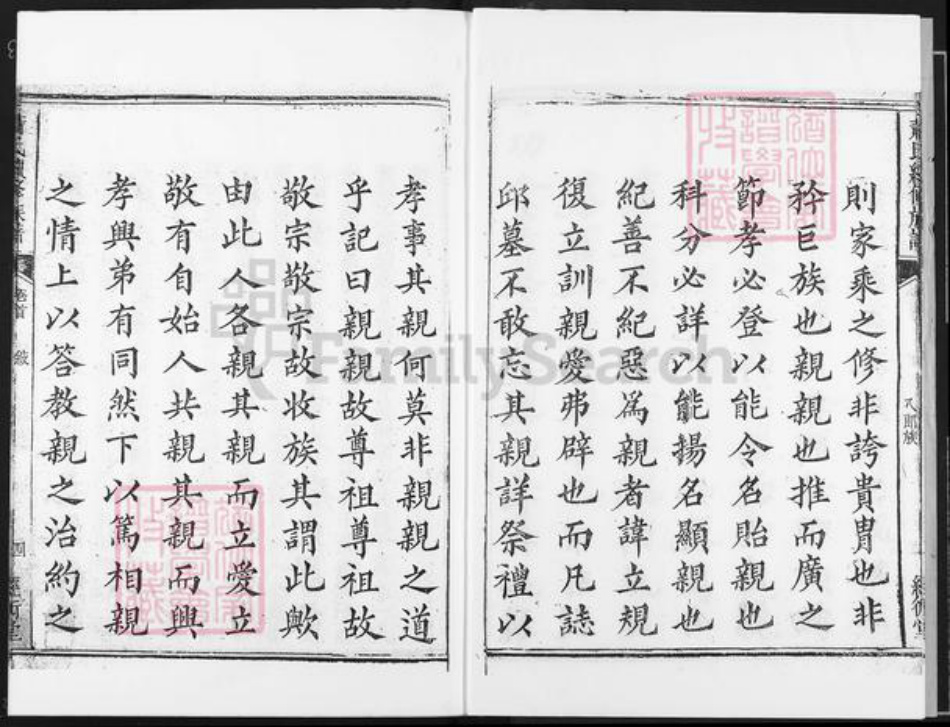 則家乘之修非誇貴胄也非
矜巨族也親親也推而廣之
節孝必登以能令名貽親也
科分必詳以能揚名顯親也
紀善不紀惡為親者諱立規
復立訓親愛弗辟也而凡誌
邱墓不敢忘其親詳祭禮以
孝事其親何莫非親親之道
乎記曰親親故尊祖尊祖故
敬宗敬宗故收族其謂此歟
由此人各親其親而立愛立
敬有自始人共親其親而興
孝興弟有同然下以篤相親
之情上以答教親之治約之
卷首
敘
四
八郎族
FamilySearch